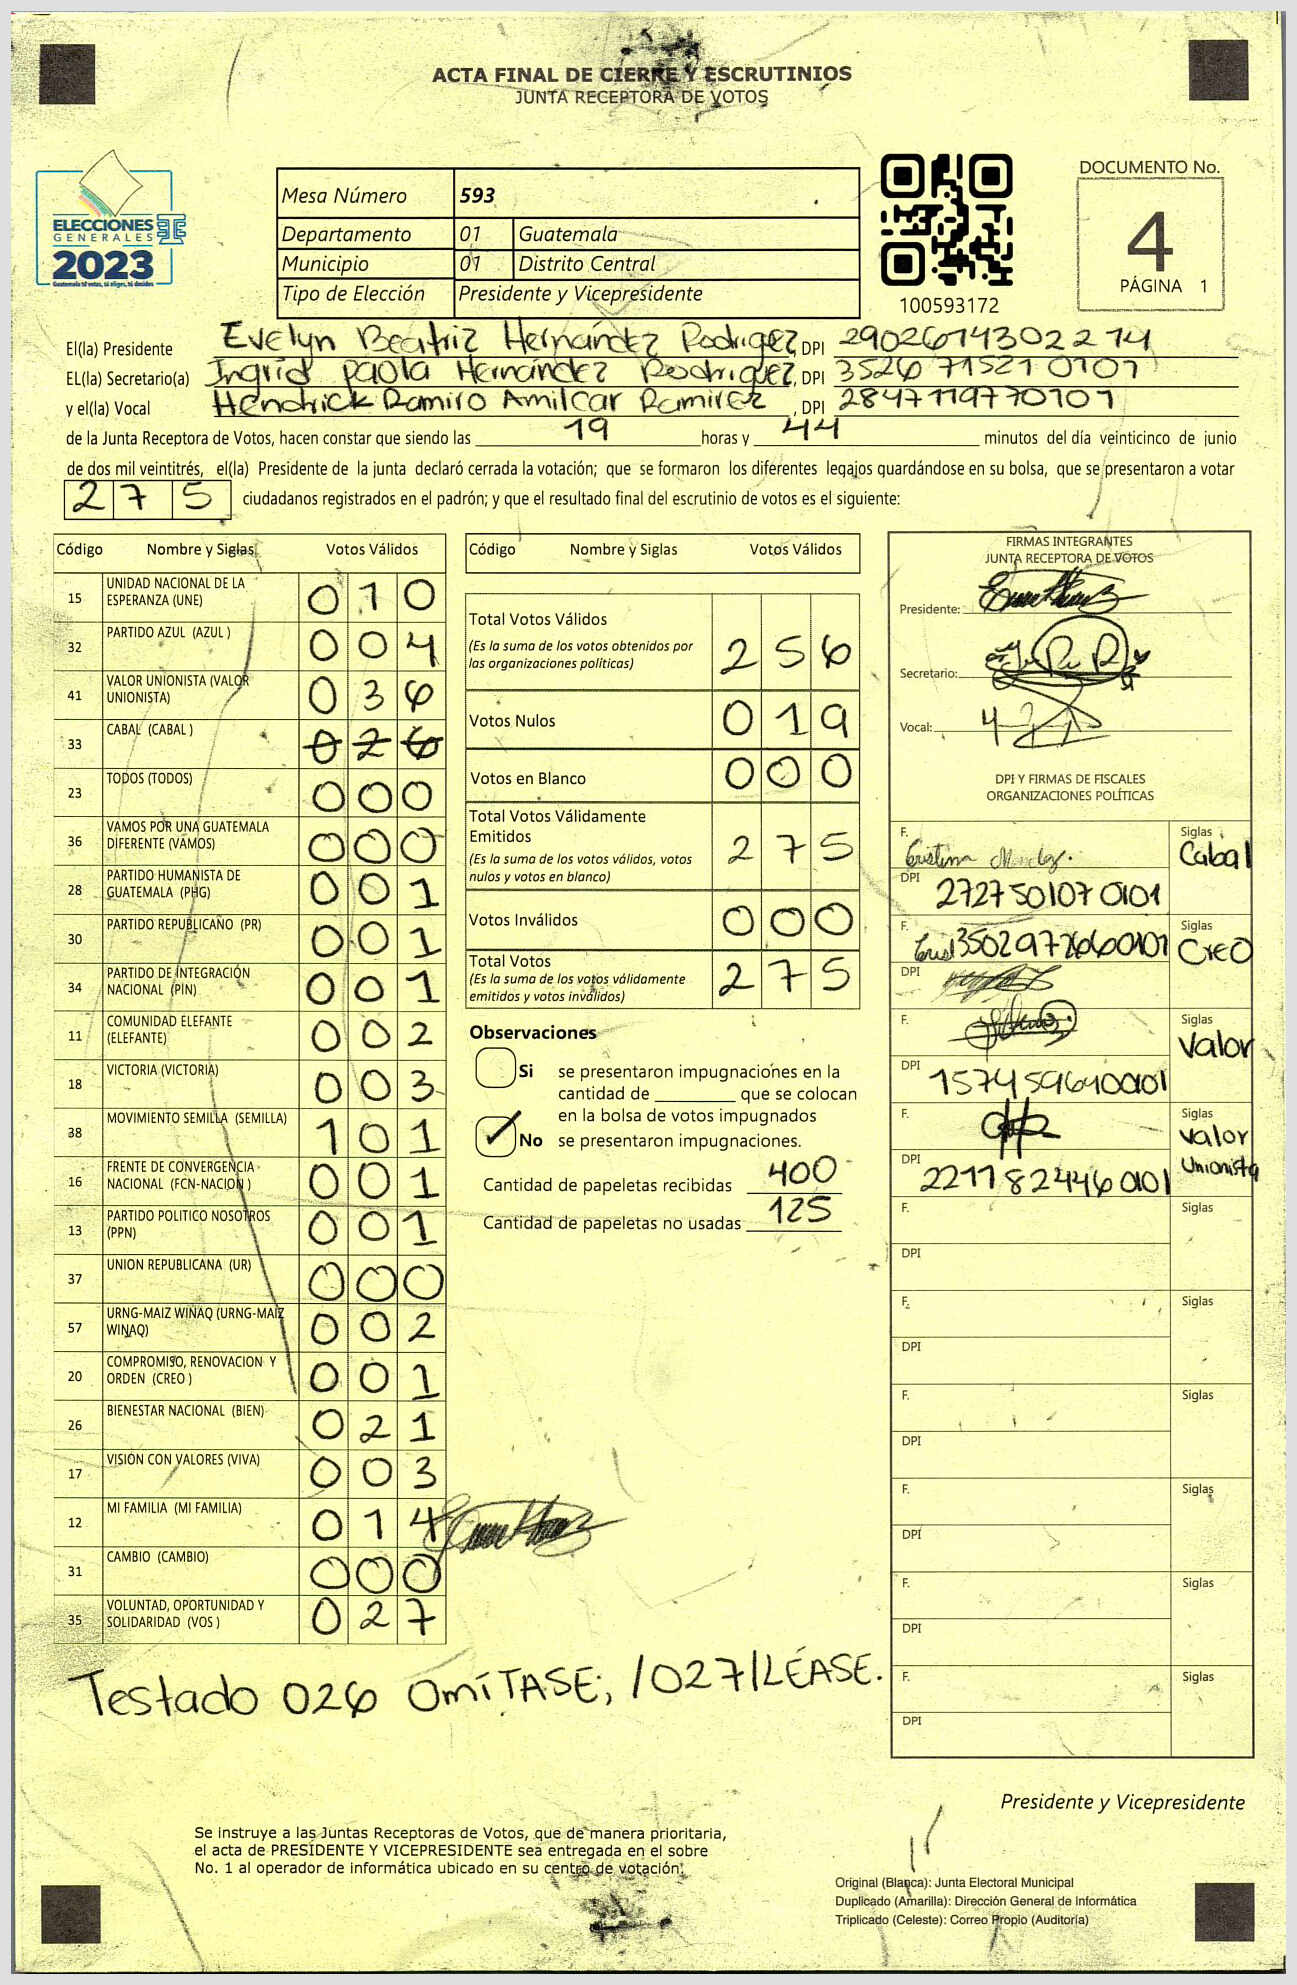 ACTA FINAL DE CIERRE Y ESCRUTINIOS
JUNTA RECEPTORA DE VOTOS
ELECCIONES
GENERALES
2023
Guatemala tú votas, tú eliges, tú decides
Mesa Número 593
Departamento 01 Guatemala
Municipio 01 Distrito Central
Tipo de Elección Presidente y Vicepresidente
100593172
DOCUMENTO No.
4
PÁGINA 1
El(la) Presidente Evelyn Beatriz Hernández Rodrigez, DPI 2902674302214
EL(la) Secretario(a) Ingrid paola Hernández Rodriguez, DPI 3526715210101
y el(la) Vocal Hendrick Ramiro Amilcar Ramirez, DPI 2847119770101
de la Junta Receptora de Votos, hacen constar que siendo las 19 horas y 44 minutos del día veinticinco de junio
de dos mil veintitrés, el(la) Presidente de la junta declaró cerrada la votación; que se formaron los diferentes legajos quardándose en su bolsa, que se presentaron a votar
275 ciudadanos registrados en el padrón; y que el resultado final del escrutinio de votos es el siguiente:
Código Nombre y Siglas Votos Válidos
15 UNIDAD NACIONAL DE LA ESPERANZA (UNE) 010
32 PARTIDO AZUL (AZUL ) 004
41 VALOR UNIONISTA (VALOR UNIONISTA) 036
33 CABAL (CABAL ) 026
23 TODOS (TODOS) 000
36 VAMOS POR UNA GUATEMALA DIFERENTE (VAMOS) 000
28 PARTIDO HUMANISTA DE GUATEMALA (PHG) 001
30 PARTIDO REPUBLICANO (PR) 001
34 PARTIDO DE INTEGRACIÓN NACIONAL (PIN) 001
11 COMUNIDAD ELEFANTE (ELEFANTE) 002
18 VICTORIA (VICTORIA) 003
38 MOVIMIENTO SEMILLA (SEMILLA) 101
16 FRENTE DE CONVERGENCIA NACIONAL (FCN-NACION ) 001
13 PARTIDO POLITICO NOSOTROS (PPN) 001
37 UNION REPUBLICANA (UR) 000
57 URNG-MAIZ WINAQ (URNG-MAIZ WINAQ) 002
20 COMPROMISO, RENOVACION Y ORDEN (CREO ) 001
26 BIENESTAR NACIONAL (BIEN) 021
17 VISIÓN CON VALORES (VIVA) 003
12 MI FAMILIA (MI FAMILIA) 014
31 CAMBIO (CAMBIO) 000
35 VOLUNTAD, OPORTUNIDAD Y SOLIDARIDAD (VOS ) 027
Testado 026 OmíTASE; /027/LÉASE.
Código Nombre y Siglas Votos Válidos
Total Votos Válidos 256
(Es la suma de los votos obtenidos por
las organizaciones políticas)
Votos Nulos 019
Votos en Blanco 000
Total Votos Válidamente
Emitidos 275
(Es la suma de los votos válidos, votos
nulos y votos en blanco)
Votos Inválidos 000
Total Votos 275
(Es la suma de los votos válidamente
emitidos y votos inválidos)
Observaciones
Si se presentaron impugnaciones en la
cantidad de ________ que se colocan
en la bolsa de votos impugnados
No se presentaron impugnaciones.
Cantidad de papeletas recibidas 400
Cantidad de papeletas no usadas 125
FIRMAS INTEGRANTES
JUNTA RECEPTORA DE VOTOS
Presidente:
Secretario:
Vocal:
DPI Y FIRMAS DE FISCALES
ORGANIZACIONES POLÍTICAS
F. Siglas Cabal
DPI 2727501070101
F. 3502972660101 Siglas CREO
DPI
F. Siglas Valor
DPI 1574596400101
F. Siglas Valor Unionista
DPI 2217824460101
F. Siglas
DPI
F. Siglas
DPI
F. Siglas
DPI
F. Siglas
DPI
F. Siglas
DPI
F. Siglas
DPI
Presidente y Vicepresidente
Se instruye a las Juntas Receptoras de Votos, que de manera prioritaria,
el acta de PRESIDENTE Y VICEPRESIDENTE sea entregada en el sobre
No. 1 al operador de informática ubicado en su centro de votación.
Original (Blanca): Junta Electoral Municipal
Duplicado (Amarilla): Dirección General de Informática
Triplicado (Celeste): Correo Propio (Auditoría)